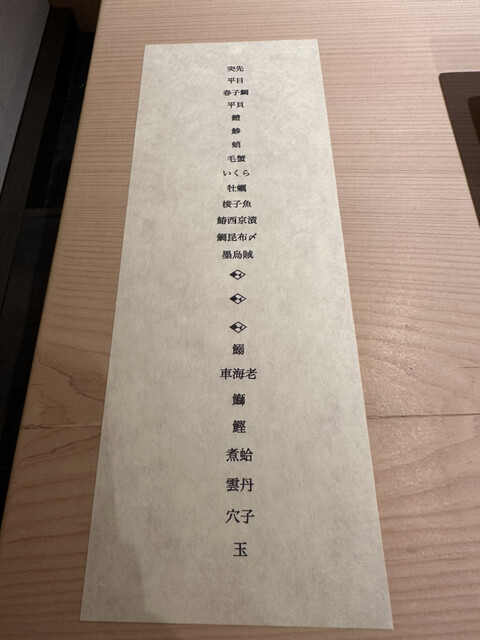 突先
平目
春子鯛
平貝
鯵
蛸
毛蟹
いくら
牡蠣
梭子魚
鰆西京漬
鯛昆布〆
墨烏賊
鰯
車海老
鰤
鰹
煮蛤
雲丹
穴子
玉